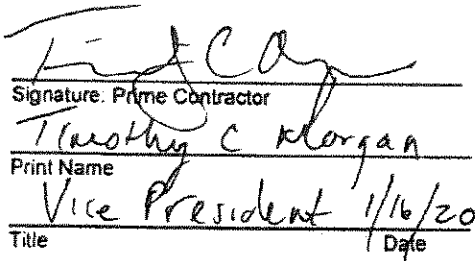 Signature: Prime Contractor
Timothy C Morgan
Print Name
Vice President 1/16/20
Title Date